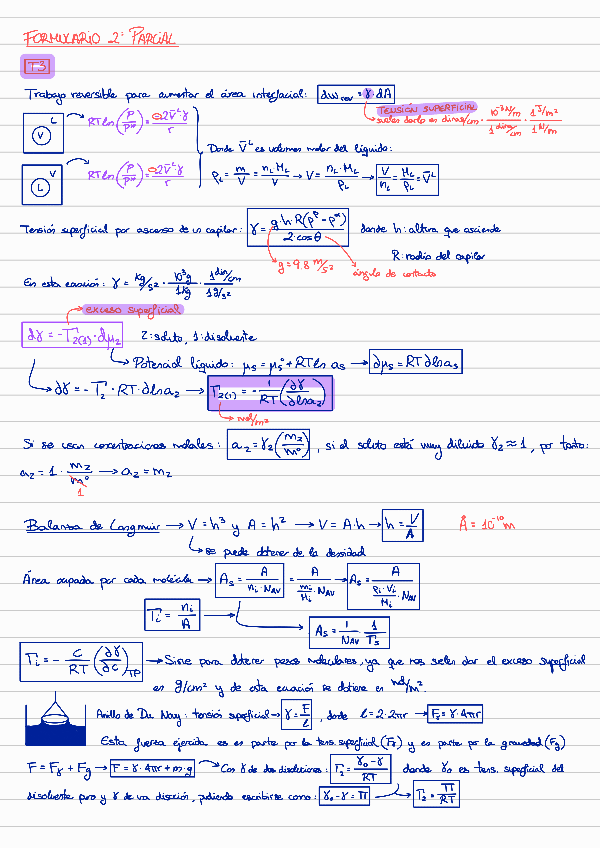 FORMULARIO 2º PARCIAL
T3
Trabajo reversible para aumentar el área interfacial: dW rev = γ dA
TENSIÓN SUPERFICIAL
suelen darlo en dinas/cm · 10⁻³ N/m / 1 din/cm · 1 J/m² / 1 N/m
L V RT ln(P/P*) = -2V̄ᴸγ/r
Donde V̄ᴸ es volumen molar del líquido:
V L RT ln(P/P*) = 2V̄ᴸγ/r
ρL = m/V = nL·ML/V → V = nL·ML/ρL → V/nL = ML/ρL = V̄ᴸ
Tensión superficial por ascenso de un capilar: γ = g·h·R(ρᵝ - ρᵅ)/2·cosθ donde h: altura que asciende
R: radio del capilar
g = 9.8 m/s² ángulo de contacto
En esta ecuación: γ = kg/s² · 10³ g/1 kg · 1 din/cm / 1 g/s²
exceso superficial
dγ = -Γ2(1)·dμ2 2: soluto, 1: disolvente
Potencial líquido: μs = μs° + RT ln as → ∂μs = RT ∂ln as
∂γ = -Γ2 · RT · ∂ln a2 → Γ2(1) = -1/RT (∂γ/∂ln a2)
mol/m²
Si se usan concentraciones molales: a2 = γ2(m2/m°), si el soluto está muy diluido γ2 ≈ 1, por tanto:
a2 = 1 · m2/m° → a2 = m2
1
Balanza de Langmuir → V = h³ y A = h² → V = A·h → h = V/A Å = 10⁻¹⁰ m
se puede obtener de la densidad
Área ocupada por cada molécula → As = A/ni·NAV = A/(mi/Mi · NAV) → As = A/(ρi·Vi/Mi · NAV)
Γi = ni/A → As = 1/NAV · 1/Γs
Γi = -C/RT (∂γ/∂c)TP → Sirve para obtener pesos moleculares, ya que nos suelen dar el exceso superficial
en g/cm² y de esta ecuación se obtiene en mol/m².
Anillo de Du Nouy: tensión superficial → γ = F/l, donde l = 2·2πr → Fγ = γ·4πr
Esta fuerza ejercida es en parte por la tens. superficial (Fγ) y en parte por la gravedad (Fg)
F = Fγ + Fg → F = γ·4πr + m·g Con γ de dos disoluciones: Γ2 = γ0-γ/RT donde γ0 es tens. superficial del
disolvente puro y γ de una disolución, pudiendo escribirse como: γ0 - γ = Π → Γ2 = Π/RT